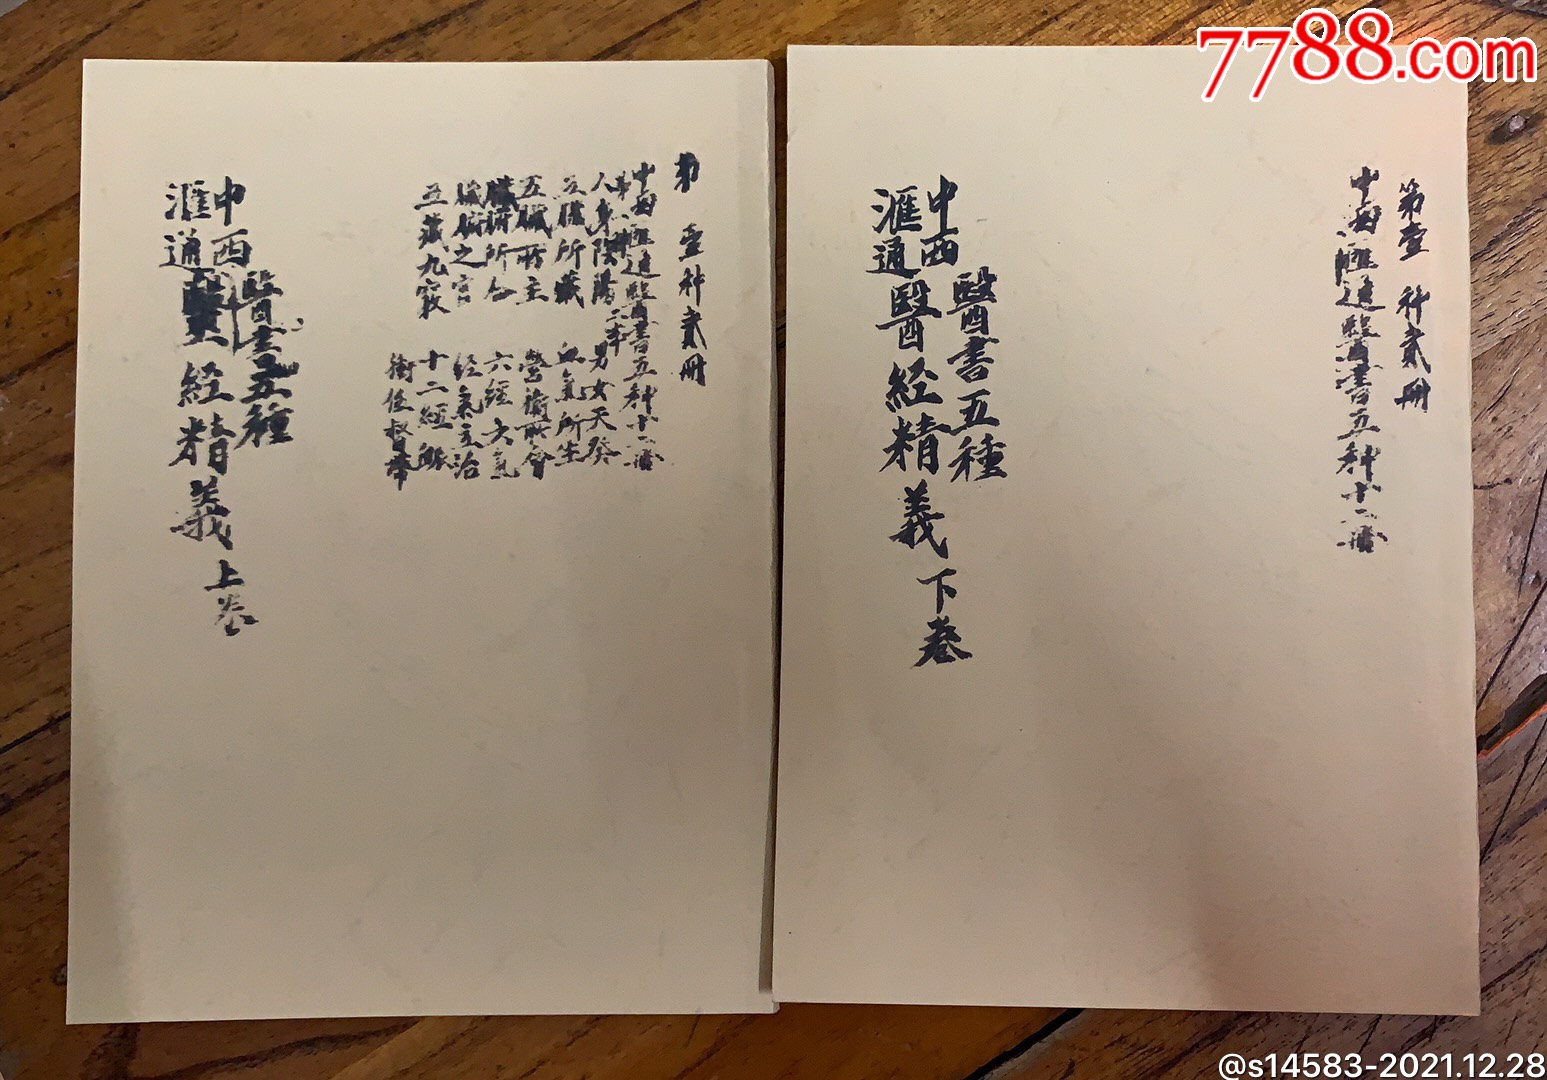 7788.com
第壹种贰册
中西匯通醫書五种十二册
人身陰陽 男女天癸
五臟所藏 血氣所生
五臟所主 營衛所會
臟腑所合 六經六氣
臟腑之官 经氣主治
五藏九竅 十二經脈
衝任督帶
中西匯通
醫書五種
醫经精義 上卷
第壹种贰册
中西匯通醫書五种十二册
中西匯通
醫書五種
醫經精義 下卷
@s14583-2021.12.28